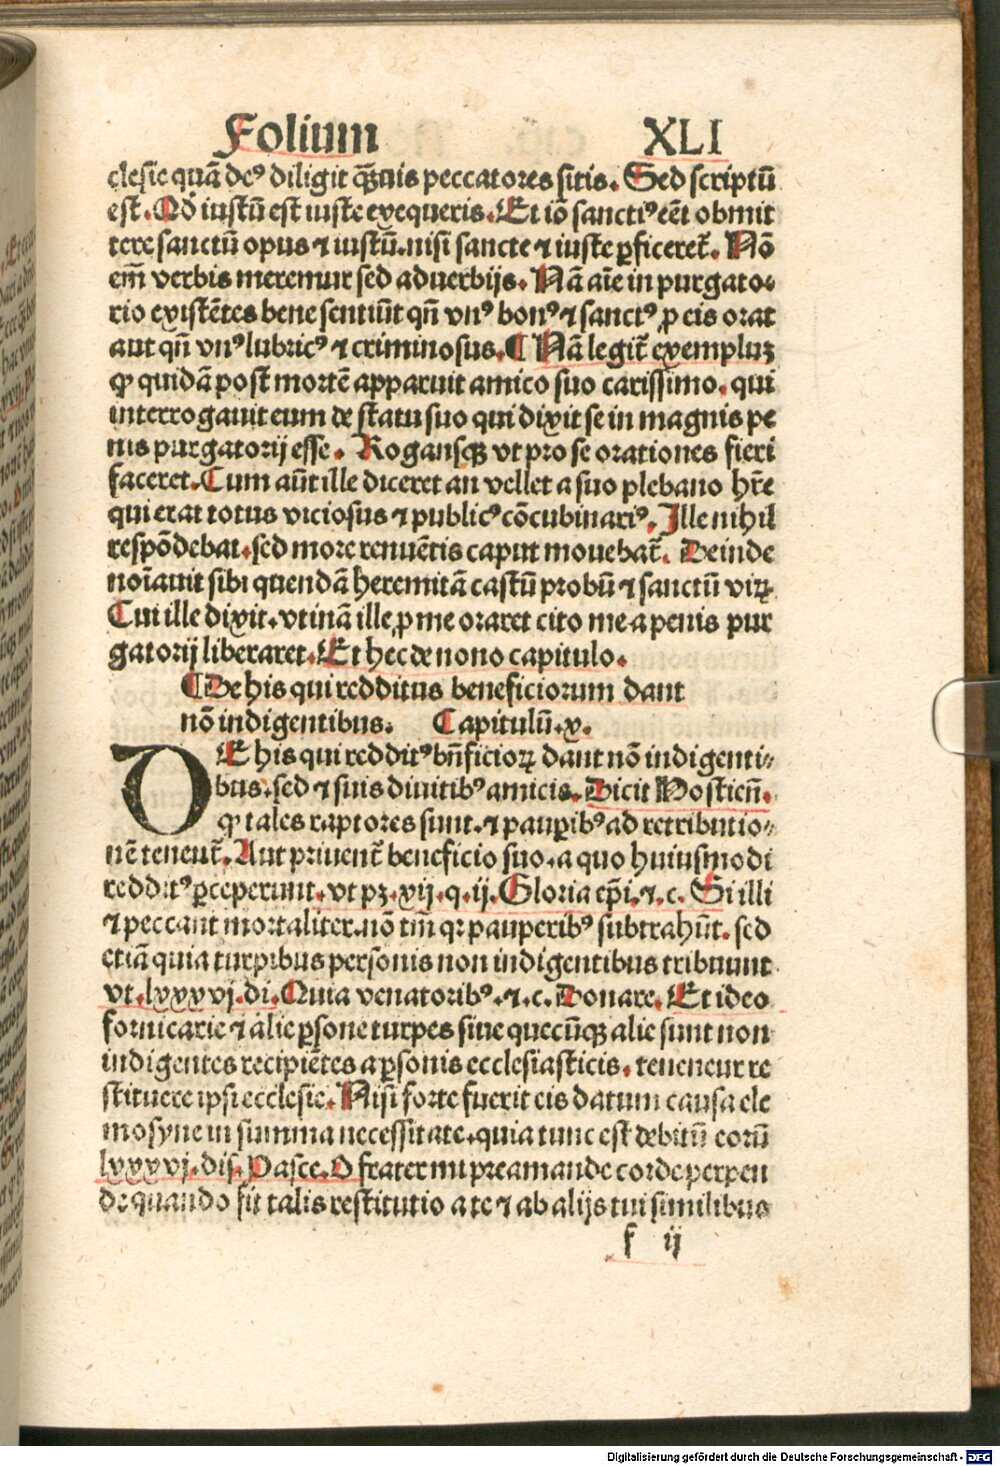 Folium XLI
clesie quā deꝰ diligit q̄ȝuis peccatores sitis. Sed scriptū
est. Qd̄ iustū est iuste exequeris. Et iō sanctiꝰ eēt obmit
tere sanctū opus ⁊ iustū. nisi sancte ⁊ iuste ꝑficeret̄. Nō
em̄ verbis meremur sed aduerbijs. Nā aīe in purgato⸗
rio existētes bene sentiūt qn̄ vnꝰ bonꝰ ⁊ sanctꝰ ꝓ eis orat
aut qn̄ vnꝰ lubricꝰ ⁊ criminosus. ¶ Nā legit̄ exempluȝ
ꝙ quidā post mortē apparuit amico suo carissimo. qui
interrogauit eum de statu suo qui dixit se in magnis pe
nis purgatorij esse. Rogansqȝ vt pro se orationes fieri
faceret. Cum aūt ille diceret an vellet a suo plebano hr̄e
qui erat totus viciosus ⁊ publicꝰ cōcubinariꝰ. Ille nihil
respōdebat. sed more renuētis caput mouebat̄. Deinde
noīauit sibi quendā heremitā castū probū ⁊ sanctū virꝝ
Cui ille dixit. vtinā ille ꝓ me oraret cito me a penis pur
gatorij liberaret. Et hec de nono capitulo.
¶ De his qui redditus beneficiorum dant
nō indigentibus. Capitulū .x.
DE his qui redditꝰ bn̄ficioꝝ dant nō indigenti⸗
bus. sed ⁊ suis diuitibꝰ amicis. Dicit Hostien̄.
ꝙ tales raptores sunt. ⁊ pauꝑibꝰ ad retributio⸗
nē teneut̄. Aut priuent̄ beneficio suo. a quo huiusmodi
redditꝰ ꝑceperunt. vt pȝ. xij. q. ij. Gloria ep̄i. ⁊. c. Si illi
⁊ peccant mortaliter. nō tm̄ qꝛ pauperibꝰ subtrahūt. sed
etiā quia turpibus personis non indigentibus tribuunt
vt. lxxxvj. di. Quia venatoribꝰ. ⁊. c. Donare. Et ideo
fornicarie ⁊ alie ꝑsone turpes siue quecūqȝ alie sunt non
indigentes recipiētes a ꝑsonis ecclesiasticis. tenentur re
stituere ipsi ecclesie. Nisi forte fuerit eis datum causa ele
mosyne in summa necessitate. quia tunc est debitū eorū
lxxxvj. dis. Pasce. O frater mi preamande corde perpen
de quando fit talis restitutio a te ⁊ ab alijs tui similibus
f ij
Digitalisierung gefördert durch die Deutsche Forschungsgemeinschaft - DFG